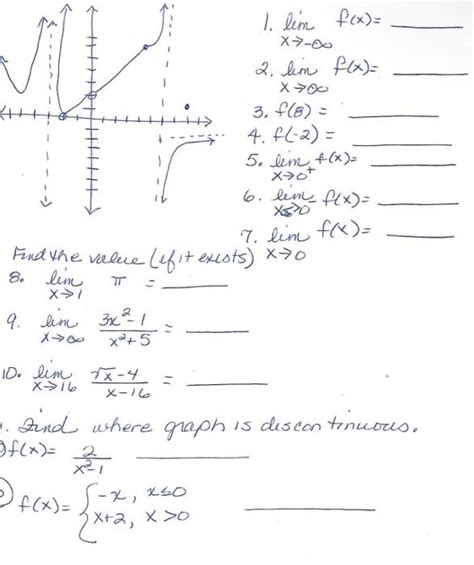 1. lim f(x)= ____
x→-∞
2. lim f(x)= ____
x→∞
3. f(8) = ____
4. f(-2) = ____
5. lim f(x)= ____
x→0⁺
6. lim f(x)= ____
x→0⁻
7. lim f(x)= ____
x→0
Find the value (if it exists)
8. lim π = ____
x→1
9. lim (3x²-1)/(x²+5) = ____
x→∞
10. lim (√x-4)/(x-16) = ____
x→16
. Find where graph is discontinuous.
f(x)= 2/(x²-1) ____
f(x)= { -x, x≤0
x+2, x>0 ____